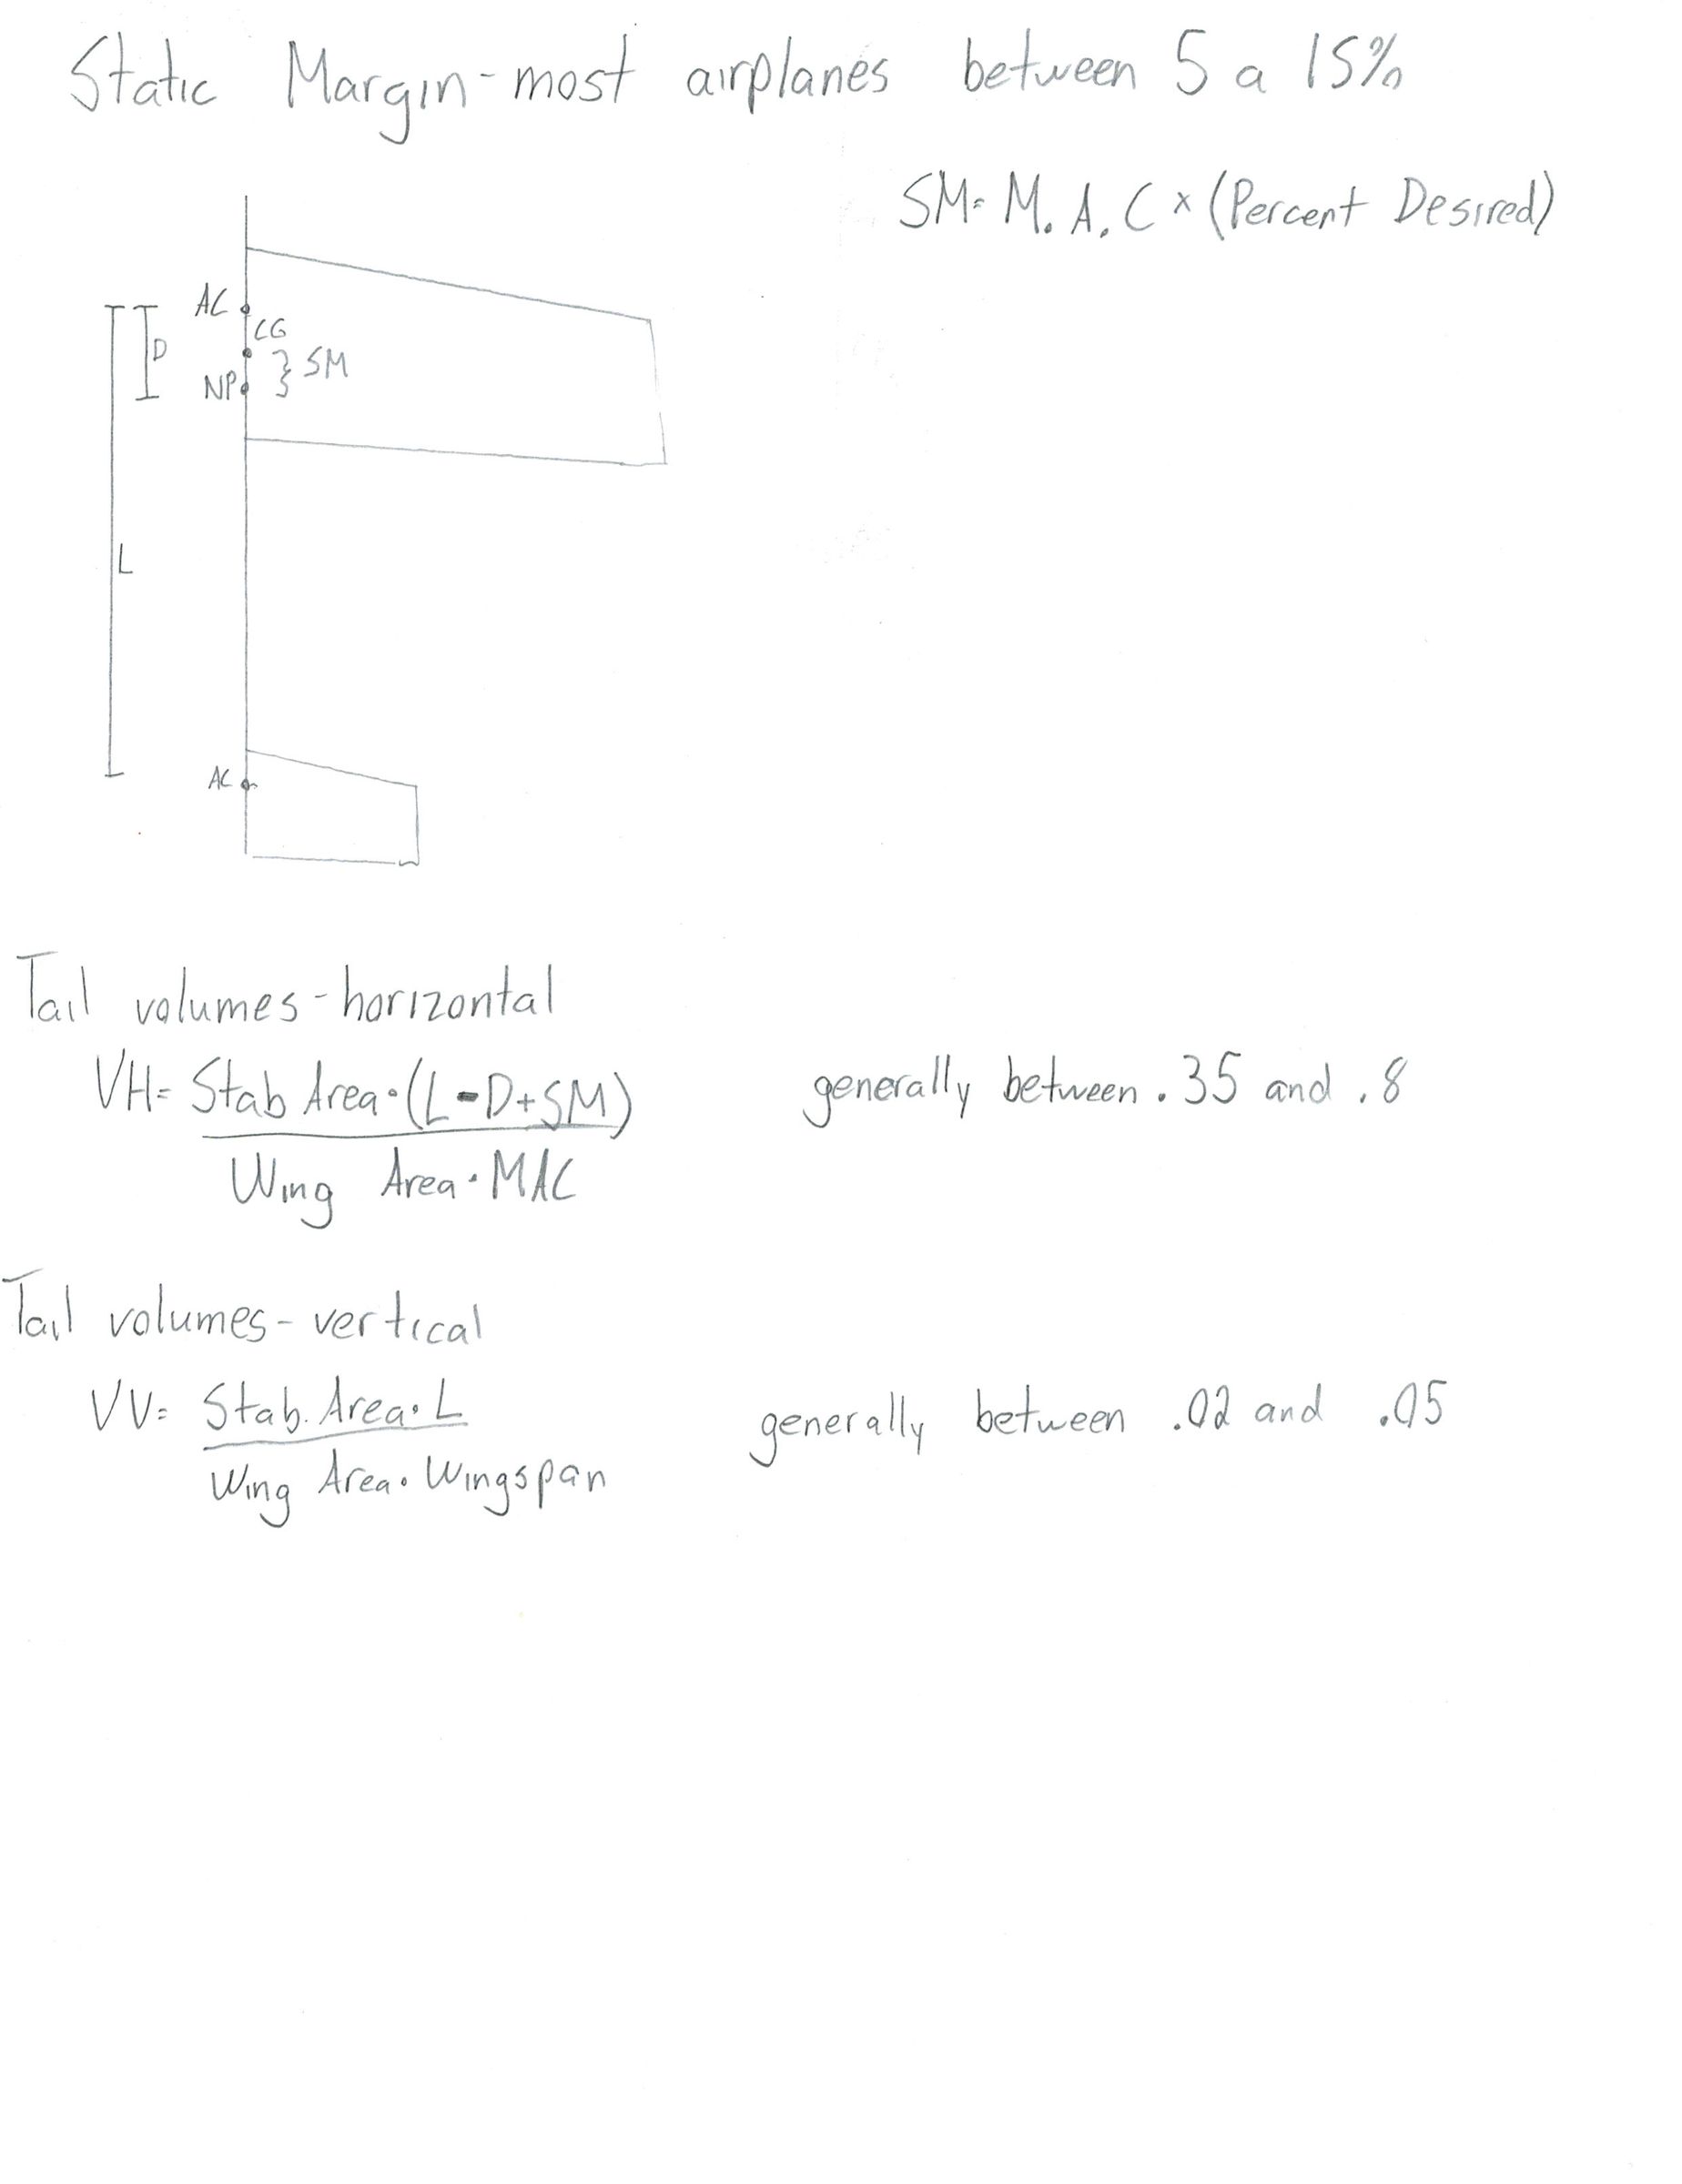 Static Margin-most airplanes between 5 a 15%
SM= M.A.C × (Percent Desired)
AC
CG
D
SM
NP
L
AC
Tail volumes-horizontal
VH= Stab Area·(L-D+SM)
Wing Area·MAC
generally between .35 and .8
Tail volumes-vertical
VV= Stab. Area·L
Wing Area·Wingspan
generally between .02 and .05